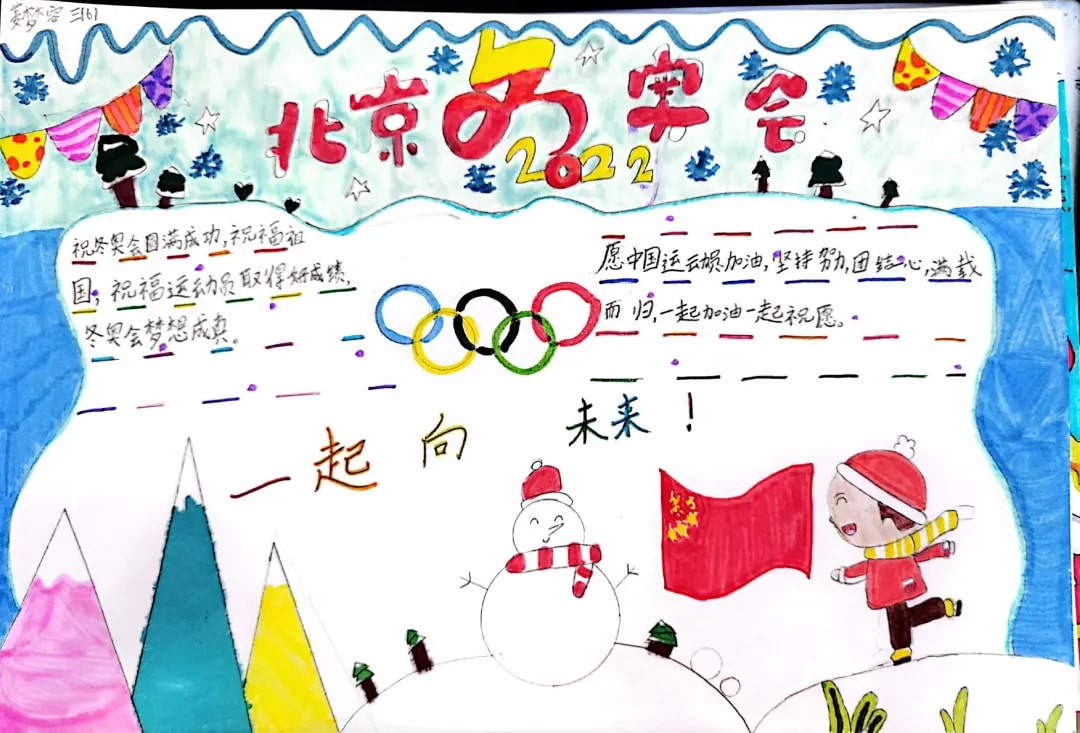 三(6)
北京冬奥会
2022
祝冬奥会圆满成功,祝福祖
国,祝福运动员取得好成绩,
冬奥会梦想成真。
愿中国运动员加油,坚持努力,团结一心,满载
而归,一起加油一起祝愿。
一起向未来!